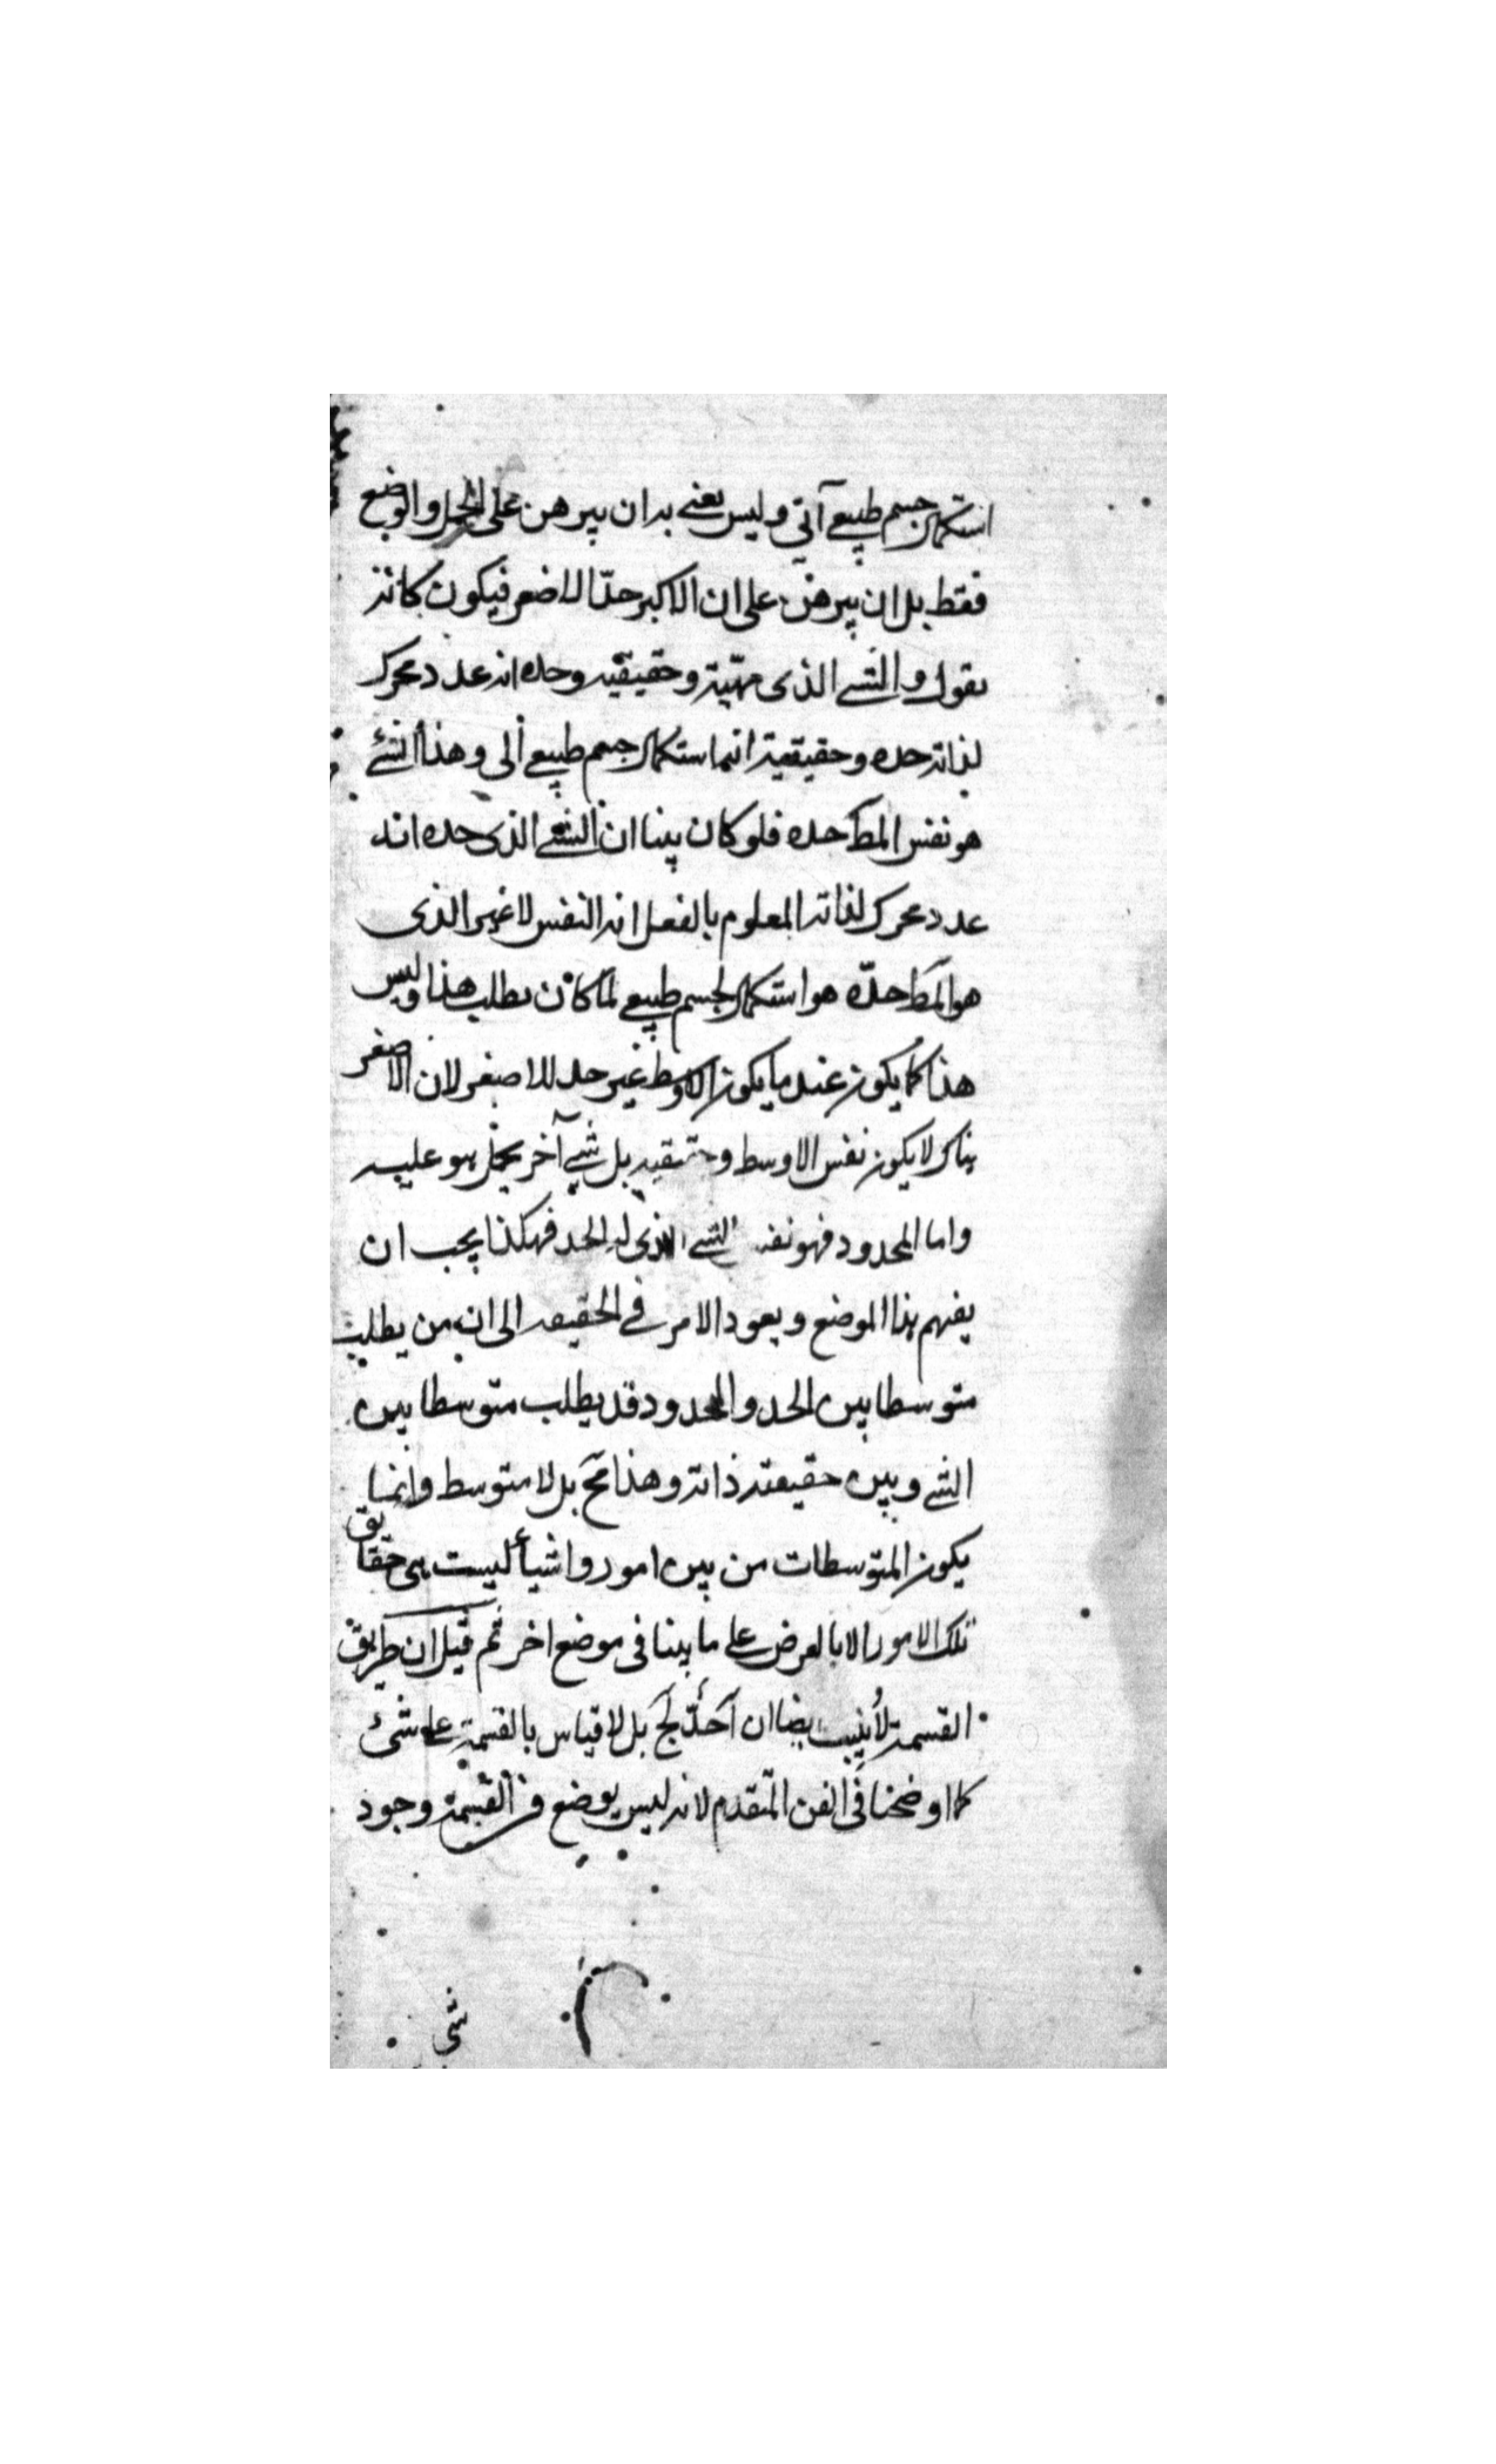 استكمال جسم طبيعي آتي وليس يعنى به ان يبرهن على الحمل والوضع
فقط بل ان يبرهن على ان الاكبر حدّا للاصغر فيكون كانه
يقول والشئ الذى مهيّته وحقيقته وحده انه عدد محرك
لذاته حده وحقيقته انها ستكمال جسم طبيعي آلى وهذا الشئ
هو نفس المط حده فلو كان بينا ان الشئ الذى حده انه
عدد محرك لذاته المعلوم بالفعل انه النفس لا غير الذى
هو المط حدّه هو استكمال لجسم طبيعي لما كان يطلب هذا وليس
هذا كما يكون عند ما يكون الاوسط غير حد للاصغر لان الاصغر
هناك لا يكون نفس الاوسط وحقيقته بل شئ آخر يحمل هو عليه
واما المحدود فهو نفس الشئ الذى له الحد فهكذا يجب ان
يفهم هذا الموضع ويعود الامر في الحقيقه الى ان من يطلب
متوسطا بين الحد والمحدود قد يطلب متوسطا بين
الشئ وبين حقيقته ذاته وهذا مح بل لا متوسط وانما
يكون المتوسطات من بين امور واشياء ليست هى حقايق
تلك الامور الا بالعرض على ما بينا فى موضع اخر ثم قيل ان طريق
القسمة لا يثبت ايضا ان آحدّ لج بل لا قياس بالقسمة على شئ
كما اوضحنا فى الفن المتقدم لانه ليس يوضع فى القسمة وجود
شى